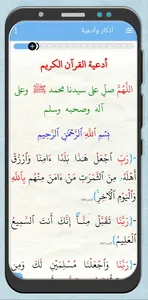 أذكار وأدعية
أدعية القرآن الكريم
اللَّهُمَّ صلِّ على سيدنا محمد ﷺ وعلى
آله وصحبه وسلم
بِسْمِ ٱللَّهِ ٱلرَّحْمَٰنِ ٱلرَّحِيمِ
(- رَبِّ ٱجْعَلْ هَٰذَا بَلَدًا ءَامِنًا وَٱرْزُقْ
أَهْلَهُۥ مِنَ ٱلثَّمَرَٰتِ مَنْ ءَامَنَ مِنْهُم بِٱللَّهِ
وَٱلْيَوْمِ ٱلْأَخِرِ)
(- رَبَّنَا تَقَبَّلْ مِنَّآ إِنَّكَ أَنتَ ٱلسَّمِيعُ
ٱلْعَلِيمُ)
(- رَبَّنَا وَٱجْعَلْنَا مُسْلِمَيْنِ لَكَ وَمِن